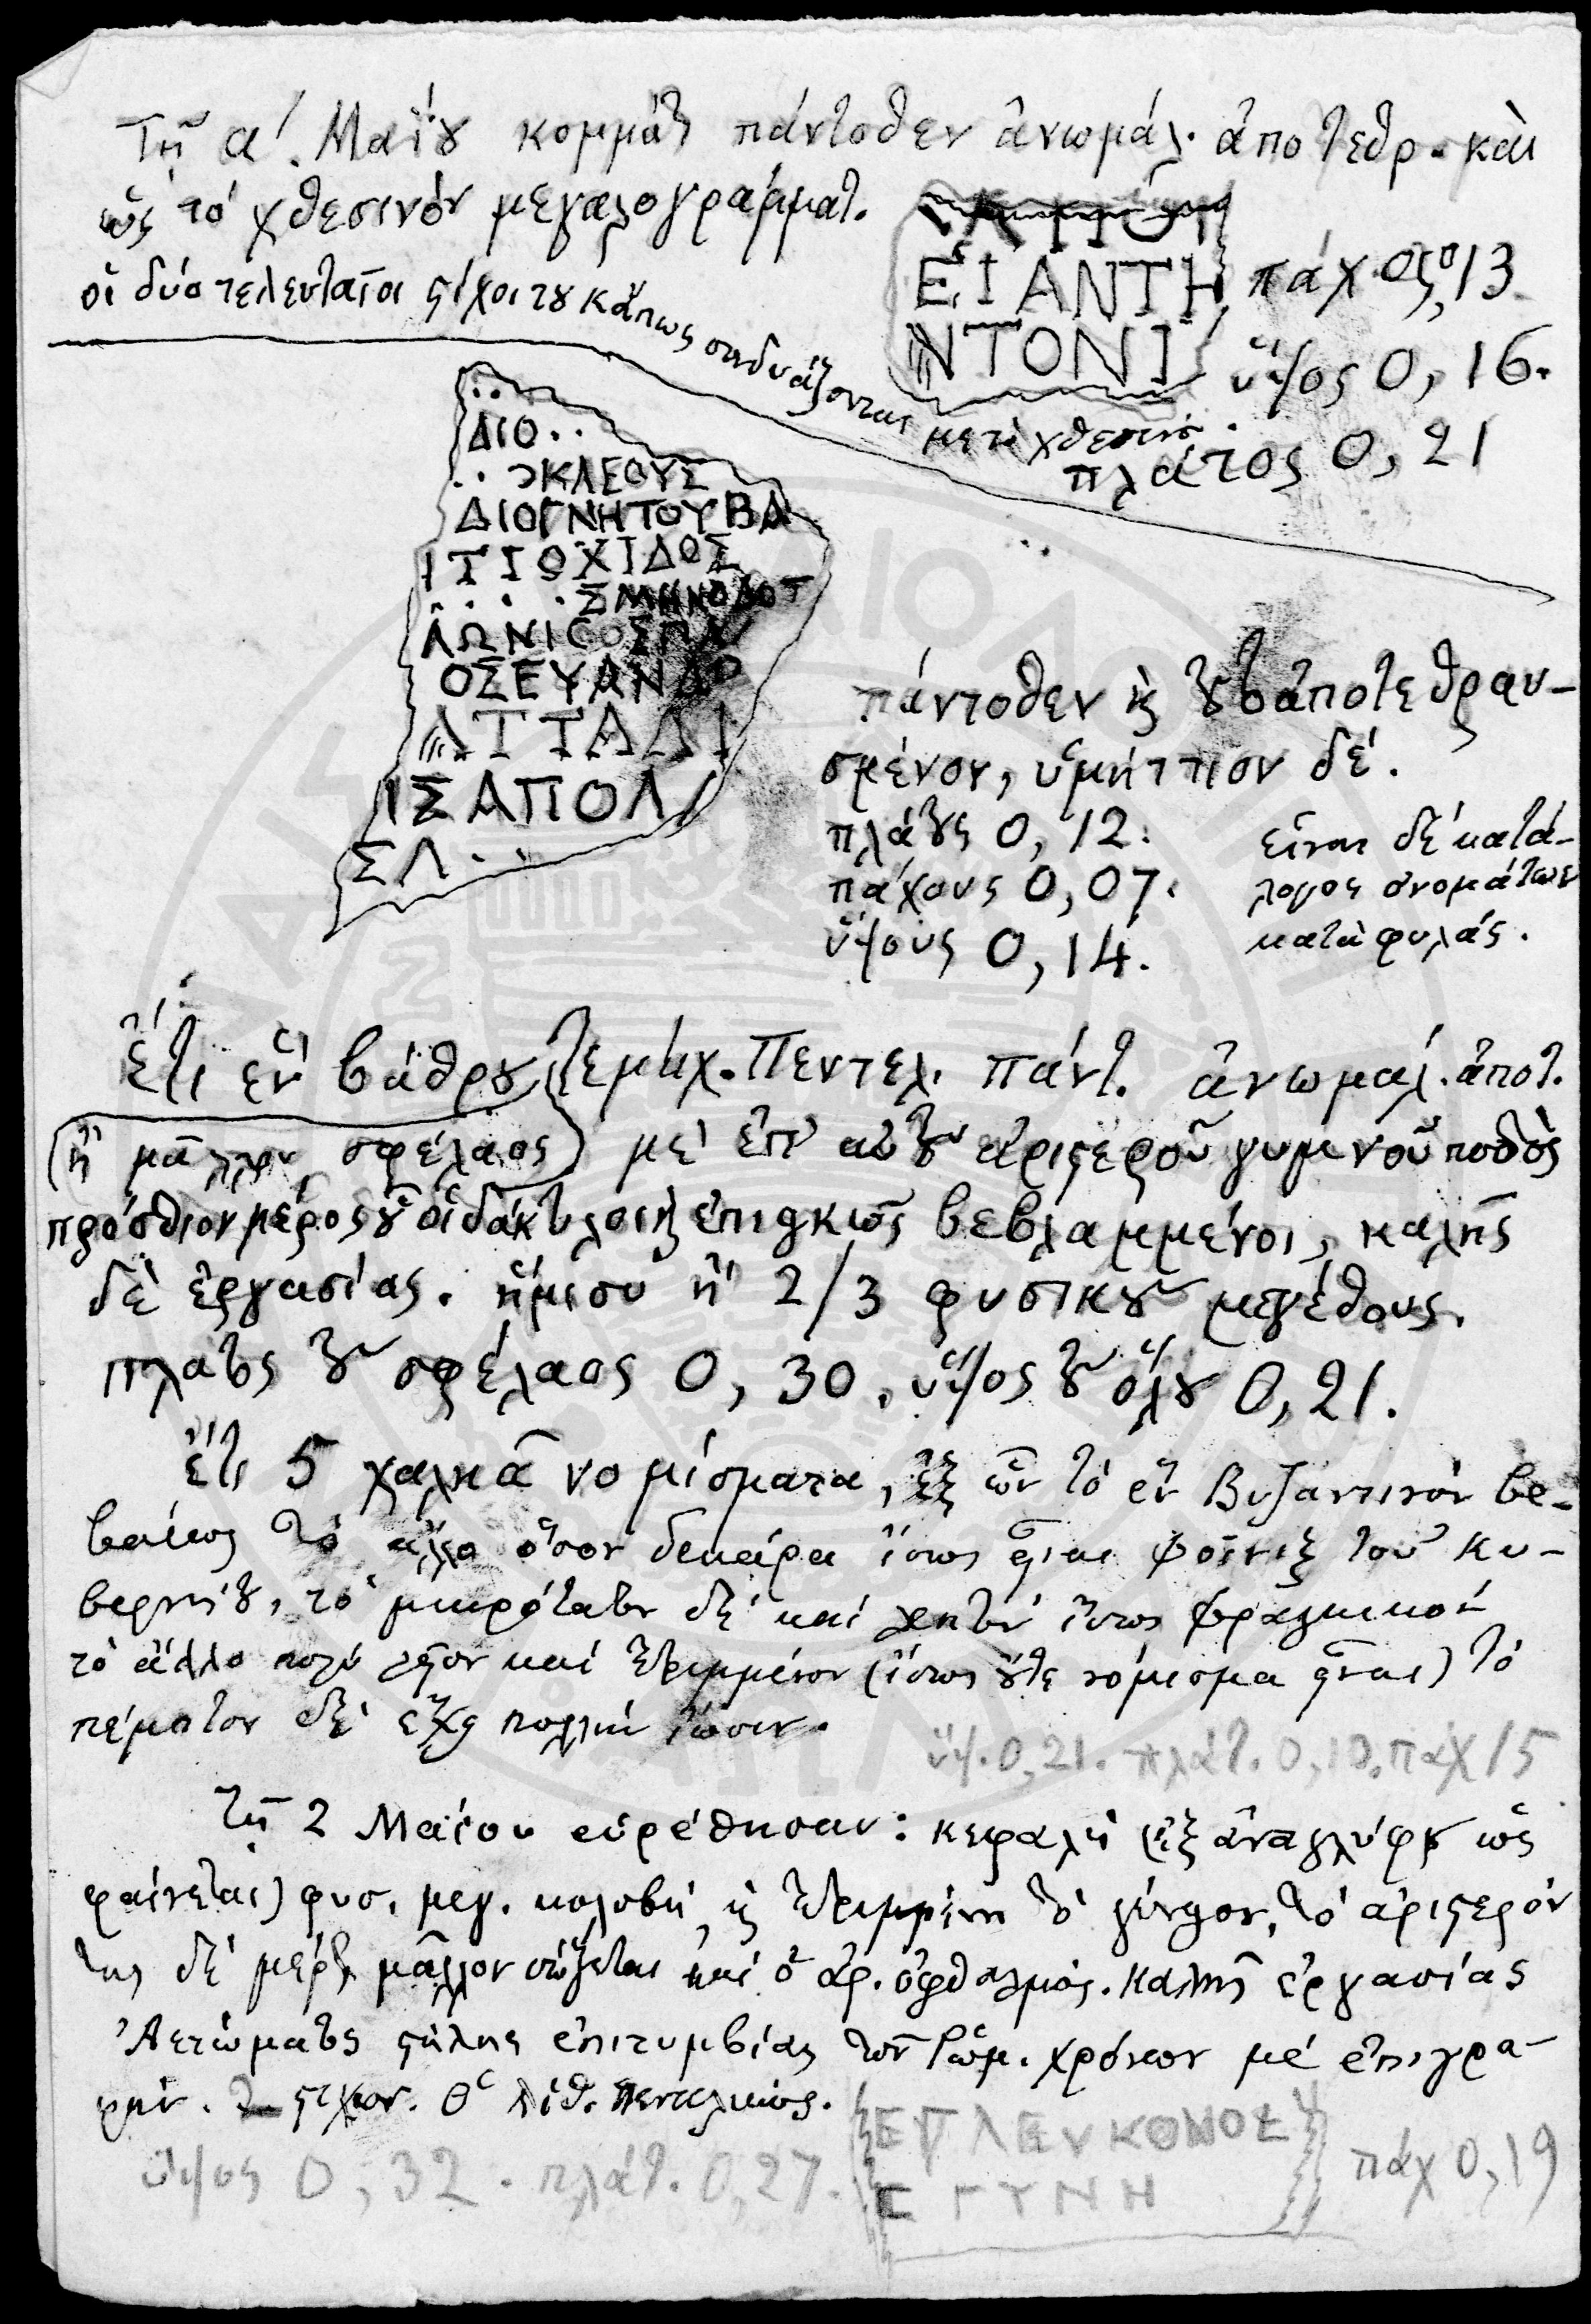 Τῇ α΄. Μαΐου κομμάτ. πάντοθεν ἀνωμάλ. ἀποτεθρ. καὶ
ὡς τό χθεσινόν μεγαλογράμματ.
ΕΙΑΝΤΗ πάχος 0,13
οἱ δύο τελευταῖοι στίχοι του κάπως συνδυάζονται μετὰ χθεσινο .
ΝΤΟΝΙ ὕψος 0, 16.
πλάτος 0, 21
ΔΙΟ..
..ΟΚΛΕΟΥΣ
ΔΙΟΓΝΗΤΟΥΒΑ
ΙΤΙΟΧΙΔΟΣ
....ΣΜΗΝΟΔΟΤ
ΛΩΝΙΟΣ
ΟΣΕΥΑΝΔΡ
ΑΤΤΑΛΙ
ΙΣΑΠΟΛ
ΣΛ...
πάντοθεν κ̀ τοῦτο ἀποτεθραυ-
σμένον, ὑμήττιον δέ.
πλάτους 0, 12.
πάχους 0, 07.
ὕψους 0, 14.
εἶναι δέ κατά-
λογος ὀνομάτων
κατὰ φυλάς.
ἔτι ἑν βάθρου τεμάχ. Πεντελ. πάντ. ἀνωμαλ. ἀποτ.
(ἢ μᾶλλον σφέλαος) μέ ἐπ' αὐτοῦ ἀριστεροῦ γυμνοῦ ποδὸς
πρόσθιον μέρος οὗ οἱ δάκτυλοι κ̀ ἐπιεικῶς βεβλαμμένοι, καλῆς
δὲ ἐργασίας. ἥμισυ ἢ 2/3 φυσικοῦ μεγέθους.
πλάτος τοῦ σφέλαος 0, 30. ὕψος τοῦ ὅλου 0, 21.
ἔτι 5 χαλκᾶ νομίσματα, ἐξ ὧν τό ἕν Βυζαντινόν βε-
βαίως τό ἄλλο ὅσον δεκάρα ἴσως εἶναι φοῖνιξ τοῦ Κυ-
βερνήτου, τό μικρότατον δέ καί λεπτόν ἴσως φράγκικον
τό ἄλλο πολύ λεῖον καί τετριμμένον (ἴσως οὔτε νόμισμα εἶναι) τό
πέμπτον δέ ἔχει πολλήν ἴωσιν.
ὕψ. 0, 21. πλάτ. 0, 10. παχ 15
Τῇ 2 Μαΐου εὑρέθησαν: κεφαλή (ἐξ ἀναγλύφου ὡς
φαίνεται) φυσ. μεγ. κολοβή κ̀ τετριμμένη τό γένειον, τό ἀριστερόν
της δέ μέρος μᾶλλον σώζεται καί ὁ ἀρ. ὀφθαλμός. καλῆς ἐργασίας
Ἀετώματος στήλης ἐπιτυμβίας τῶν Ῥωμ. χρόνων μέ ἐπιγρα-
φήν. 2 στίχων. Ὁ λίθ. Πεντελικός.
ΛΕΥΚΟΝΟΕ
ΓΥΝΗ
ὕψος 0, 32. πλάτ. 0, 27.
πάχ 0, 19